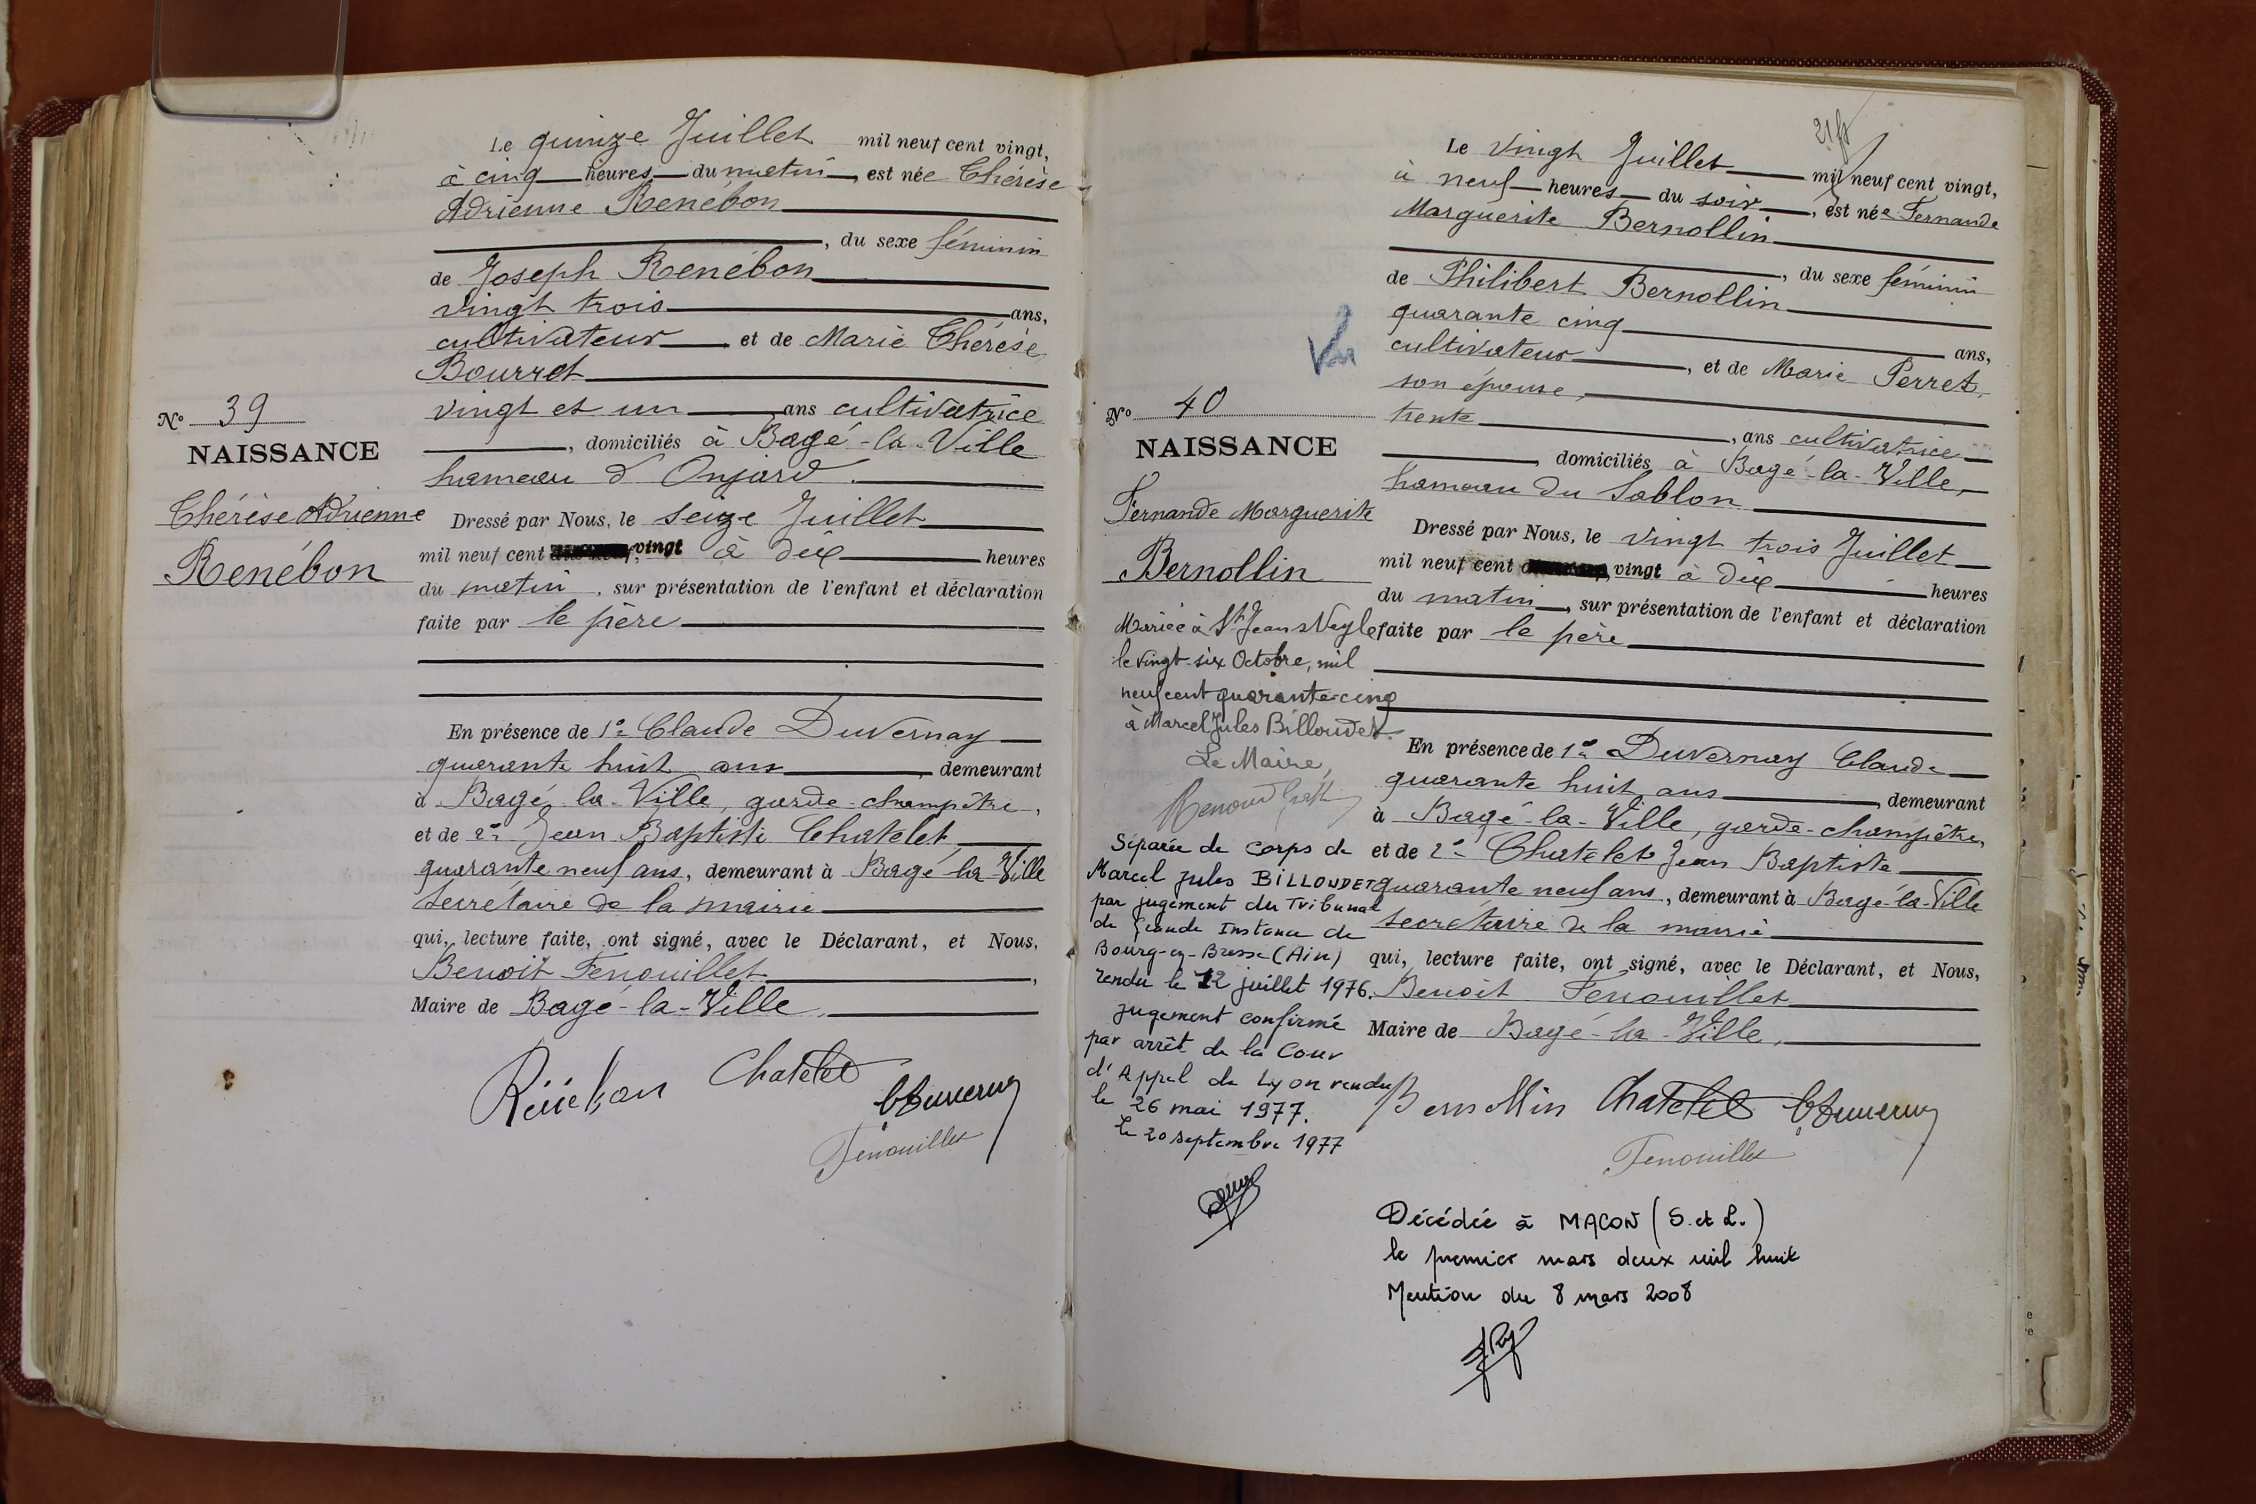 Le quinze Juillet mil neuf cent vingt,
à cinq heures du matin, est née Thérèse
Adrienne Renébon
, du sexe féminin
de Joseph Renébon
vingt trois ans,
cultivateur et de Marie Thérèse
Bourret
vingt et un ans cultivatrice
, domiciliés à Bagé-la-Ville
hameau d'Onjard.
N° 39
NAISSANCE
Thérèse Adrienne
Renébon
Dressé par Nous, le seize Juillet
mil neuf cent vingt à dix heures
du matin, sur présentation de l'enfant et déclaration
faite par le père
En présence de 1° Claude Duvernay
quarante huit ans demeurant
à Bagé-la-Ville, garde-champêtre,
et de 2° Jean Baptiste Chatelet
quarante neuf ans, demeurant à Bagé-la-Ville
secrétaire de la mairie
qui, lecture faite, ont signé, avec le Déclarant, et Nous,
Benoit Fenouillet,
Maire de Bagé-la-Ville.
Renébon Chatelet
Duvernay
Fenouillet
Le vingt Juillet mil neuf cent vingt,
à neuf heures du soir, est née Fernande
Marguerite Bernollin
, du sexe féminin
de Philibert Bernollin
quarante cinq ans,
cultivateur, et de Marie Perret,
son épouse,
trente, ans cultivatrice
domiciliés à Bagé-la-Ville,
hameau du Sablon
N° 40
NAISSANCE
Fernande Marguerite
Bernollin
Mariée à St Jean s/Veyle
le vingt-six Octobre, mil
neuf cent quarante-cinq
à Marcel Jules Billoudet
Le Maire,
Séparée de corps de
Marcel Jules BILLOUDET
par jugement du Tribunal
de Grande Instance de
Bourg-en-Bresse (Ain)
rendu le 12 juillet 1976.
jugement confirmé
par arrêt de la Cour
d'Appel de Lyon rendu
le 26 mai 1977.
Le 20 septembre 1977
Dressé par Nous, le vingt trois Juillet
mil neuf cent vingt à dix heures
du matin, sur présentation de l'enfant et déclaration
faite par le père
En présence de 1° Duvernay Claude
quarante huit ans, demeurant
à Bagé-la-Ville, garde-champêtre,
et de 2° Chatelet Jean Baptiste
quarante neuf ans, demeurant à Bagé-la-Ville
secrétaire de la mairie
qui, lecture faite, ont signé, avec le Déclarant, et Nous,
Benoit Fenouillet
Maire de Bagé-la-Ville,
Bernollin Chatelet Duvernay
Fenouillet
Décédée à MACON (S. et L.)
le premier mars deux mil huit
Mention du 8 mars 2008